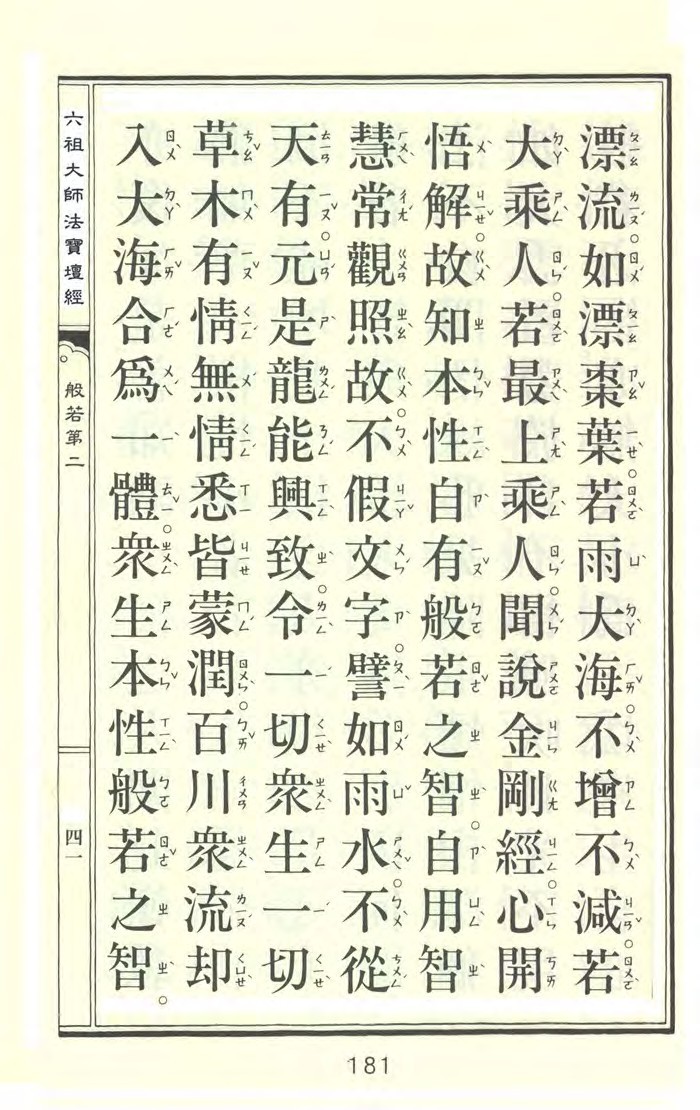 漂流如漂棗葉若雨大海不增不減若
大乘人若最上乘人聞說金剛經心開
悟解故知本性自有般若之智自用智
慧常觀照故不假文字譬如雨水不從
天有元是龍能興致令一切眾生一切
草木有情無情悉皆蒙潤百川眾流却
入大海合為一體眾生本性般若之智
六祖大師法寶壇經
般若第二
四一
181